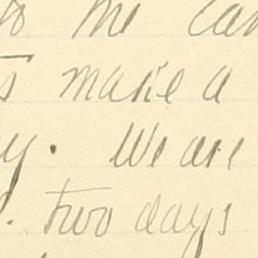 to me can
make a
y. We are
two days